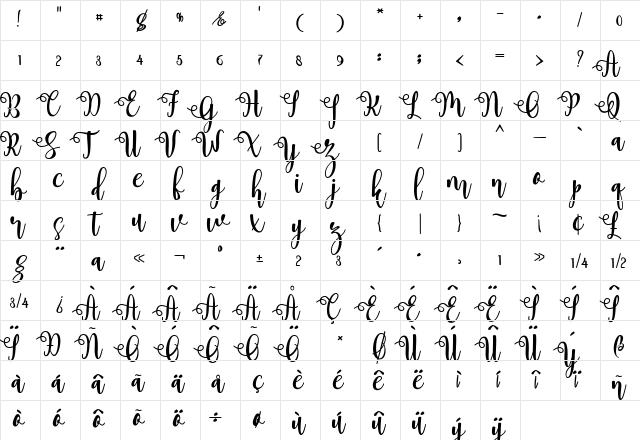 ! " # $ % & ' ( ) * + , - . / 0
1 2 3 4 5 6 7 8 9 : ; < = > ? A
B C D E F G H I J K L M N O P Q
R S T U V W X Y Z [ / ] ^ _ ` a
b c d e f g h i j k l m n o p q
r s t u v w x y z { | } ~ ¡ ¢ £
§ ¨ a « ¬ ° ± 2 3 ´ · ¸ 1 » 1/4 1/2
3/4 ¿ À Á Â Ã Ä Å Ç È É Ê Ë Ì Í Î
Ï Ð Ñ Ò Ó Ô Õ Ö × Ø Ù Ú Û Ü Ý ß
à á â ã ä å ç è é ê ë ì í î ï ñ
ò ó ô õ ö ÷ ø ù ú û ü ý ÿ